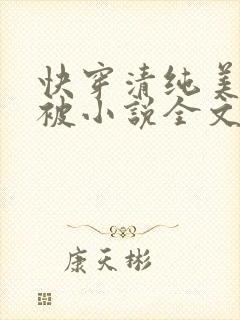 快穿清纯美
被小说全文
康天彬